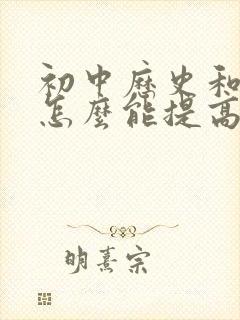 初中歷史和
怎麼能提高
明熹宗